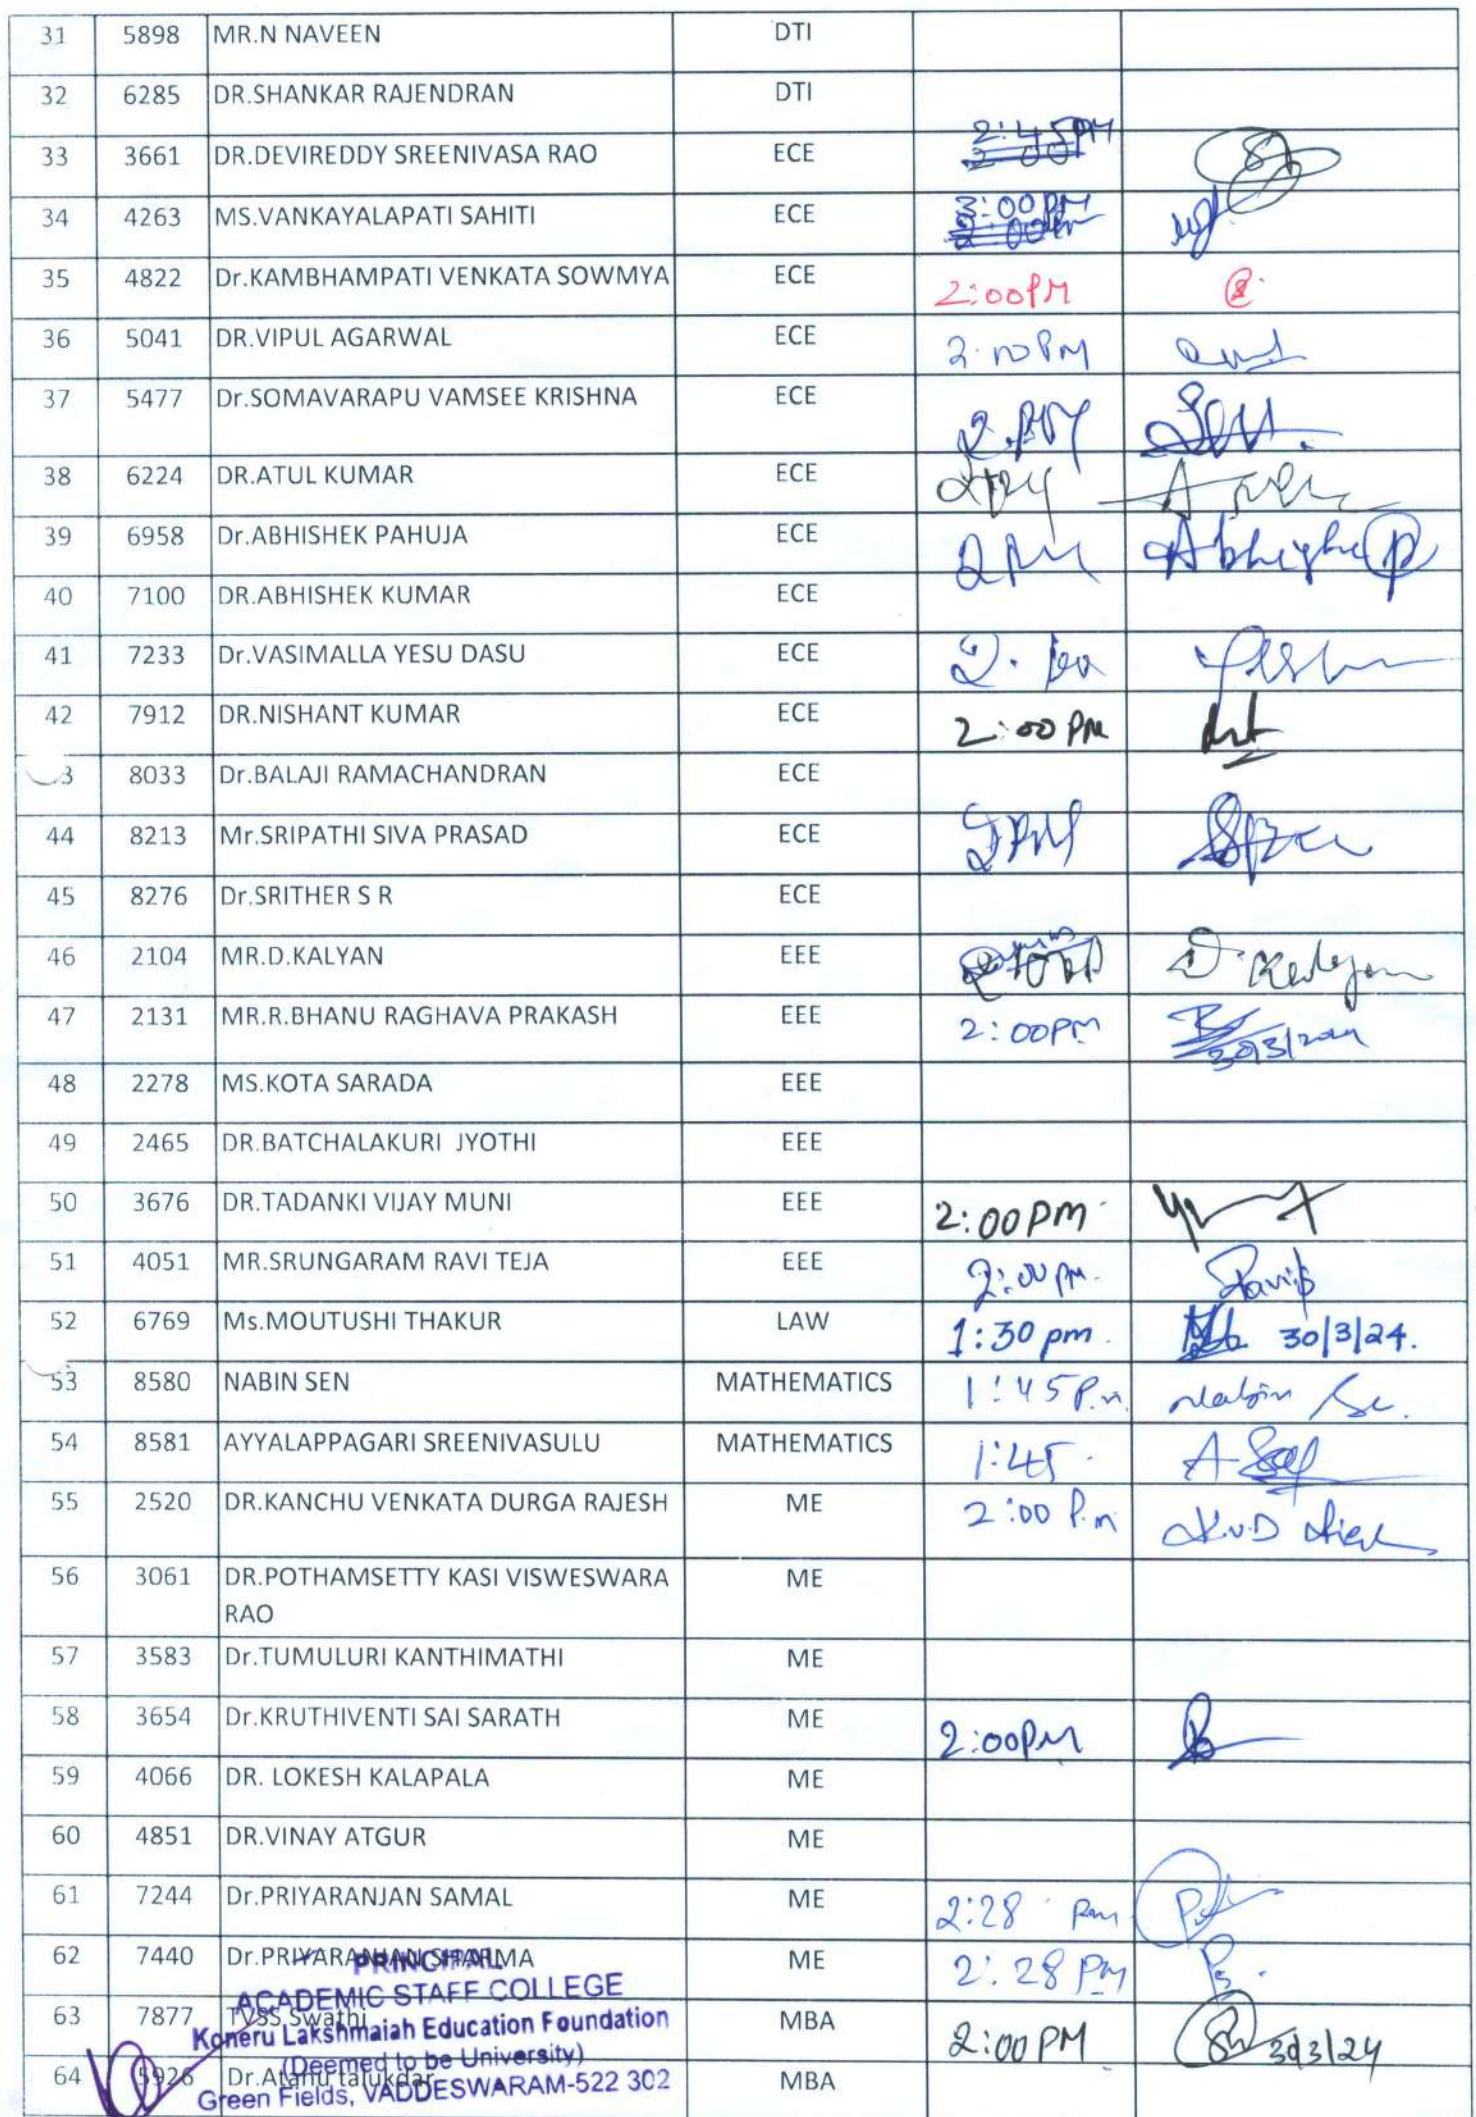 31 5898 MR.N NAVEEN DTI
32 6285 DR.SHANKAR RAJENDRAN DTI
33 3661 DR.DEVIREDDY SREENIVASA RAO ECE 2:45PM
34 4263 MS.VANKAYALAPATI SAHITI ECE 3:00PM
35 4822 Dr.KAMBHAMPATI VENKATA SOWMYA ECE 2:00PM
36 5041 DR.VIPUL AGARWAL ECE
37 5477 Dr.SOMAVARAPU VAMSEE KRISHNA ECE
38 6224 DR.ATUL KUMAR ECE
39 6958 Dr.ABHISHEK PAHUJA ECE 2PM
40 7100 DR.ABHISHEK KUMAR ECE
41 7233 Dr.VASIMALLA YESU DASU ECE
42 7912 DR.NISHANT KUMAR ECE 2:00 PM
8033 Dr.BALAJI RAMACHANDRAN ECE
44 8213 Mr.SRIPATHI SIVA PRASAD ECE 2PM
45 8276 Dr.SRITHER S R ECE
46 2104 MR.D.KALYAN EEE D. Kalyan
47 2131 MR.R.BHANU RAGHAVA PRAKASH EEE 2:00PM
30/3/2024
48 2278 MS.KOTA SARADA EEE
49 2465 DR.BATCHALAKURI JYOTHI EEE
50 3676 DR.TADANKI VIJAY MUNI EEE 2:00PM
51 4051 MR.SRUNGARAM RAVI TEJA EEE 2:00 PM.
52 6769 Ms.MOUTUSHI THAKUR LAW 1:30 pm. 30/3/24.
53 8580 NABIN SEN MATHEMATICS 1:45 P.m. Nabin
54 8581 AYYALAPPAGARI SREENIVASULU MATHEMATICS 1:45
55 2520 DR.KANCHU VENKATA DURGA RAJESH ME 2:00 P.m
56 3061 DR.POTHAMSETTY KASI VISWESWARA ME
RAO
57 3583 Dr.TUMULURI KANTHIMATHI ME
58 3654 Dr.KRUTHIVENTI SAI SARATH ME 2:00PM
59 4066 DR. LOKESH KALAPALA ME
60 4851 DR.VINAY ATGUR ME
61 7244 Dr.PRIYARANJAN SAMAL ME 2:28 Pm
62 7440 Dr.PRIYARANJAN SHARMA ME 2:28 PM
PRINCIPAL
ACADEMIC STAFF COLLEGE
63 7877 TVSS Swathi MBA 2:00 PM 30/3/24
Koneru Lakshmaiah Education Foundation
(Deemed to be University)
64 5926 Dr.Atanu talukdar MBA
Green Fields, VADDESWARAM-522 302